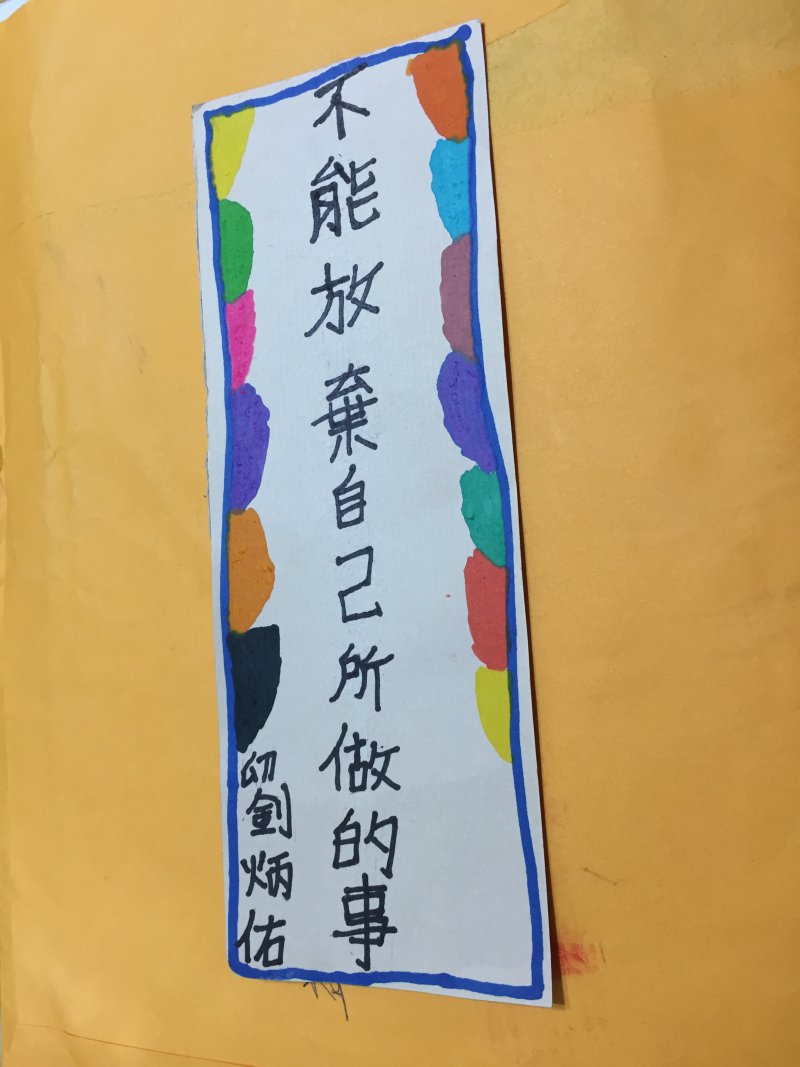 不能放棄自己所做的事
劉炳佑